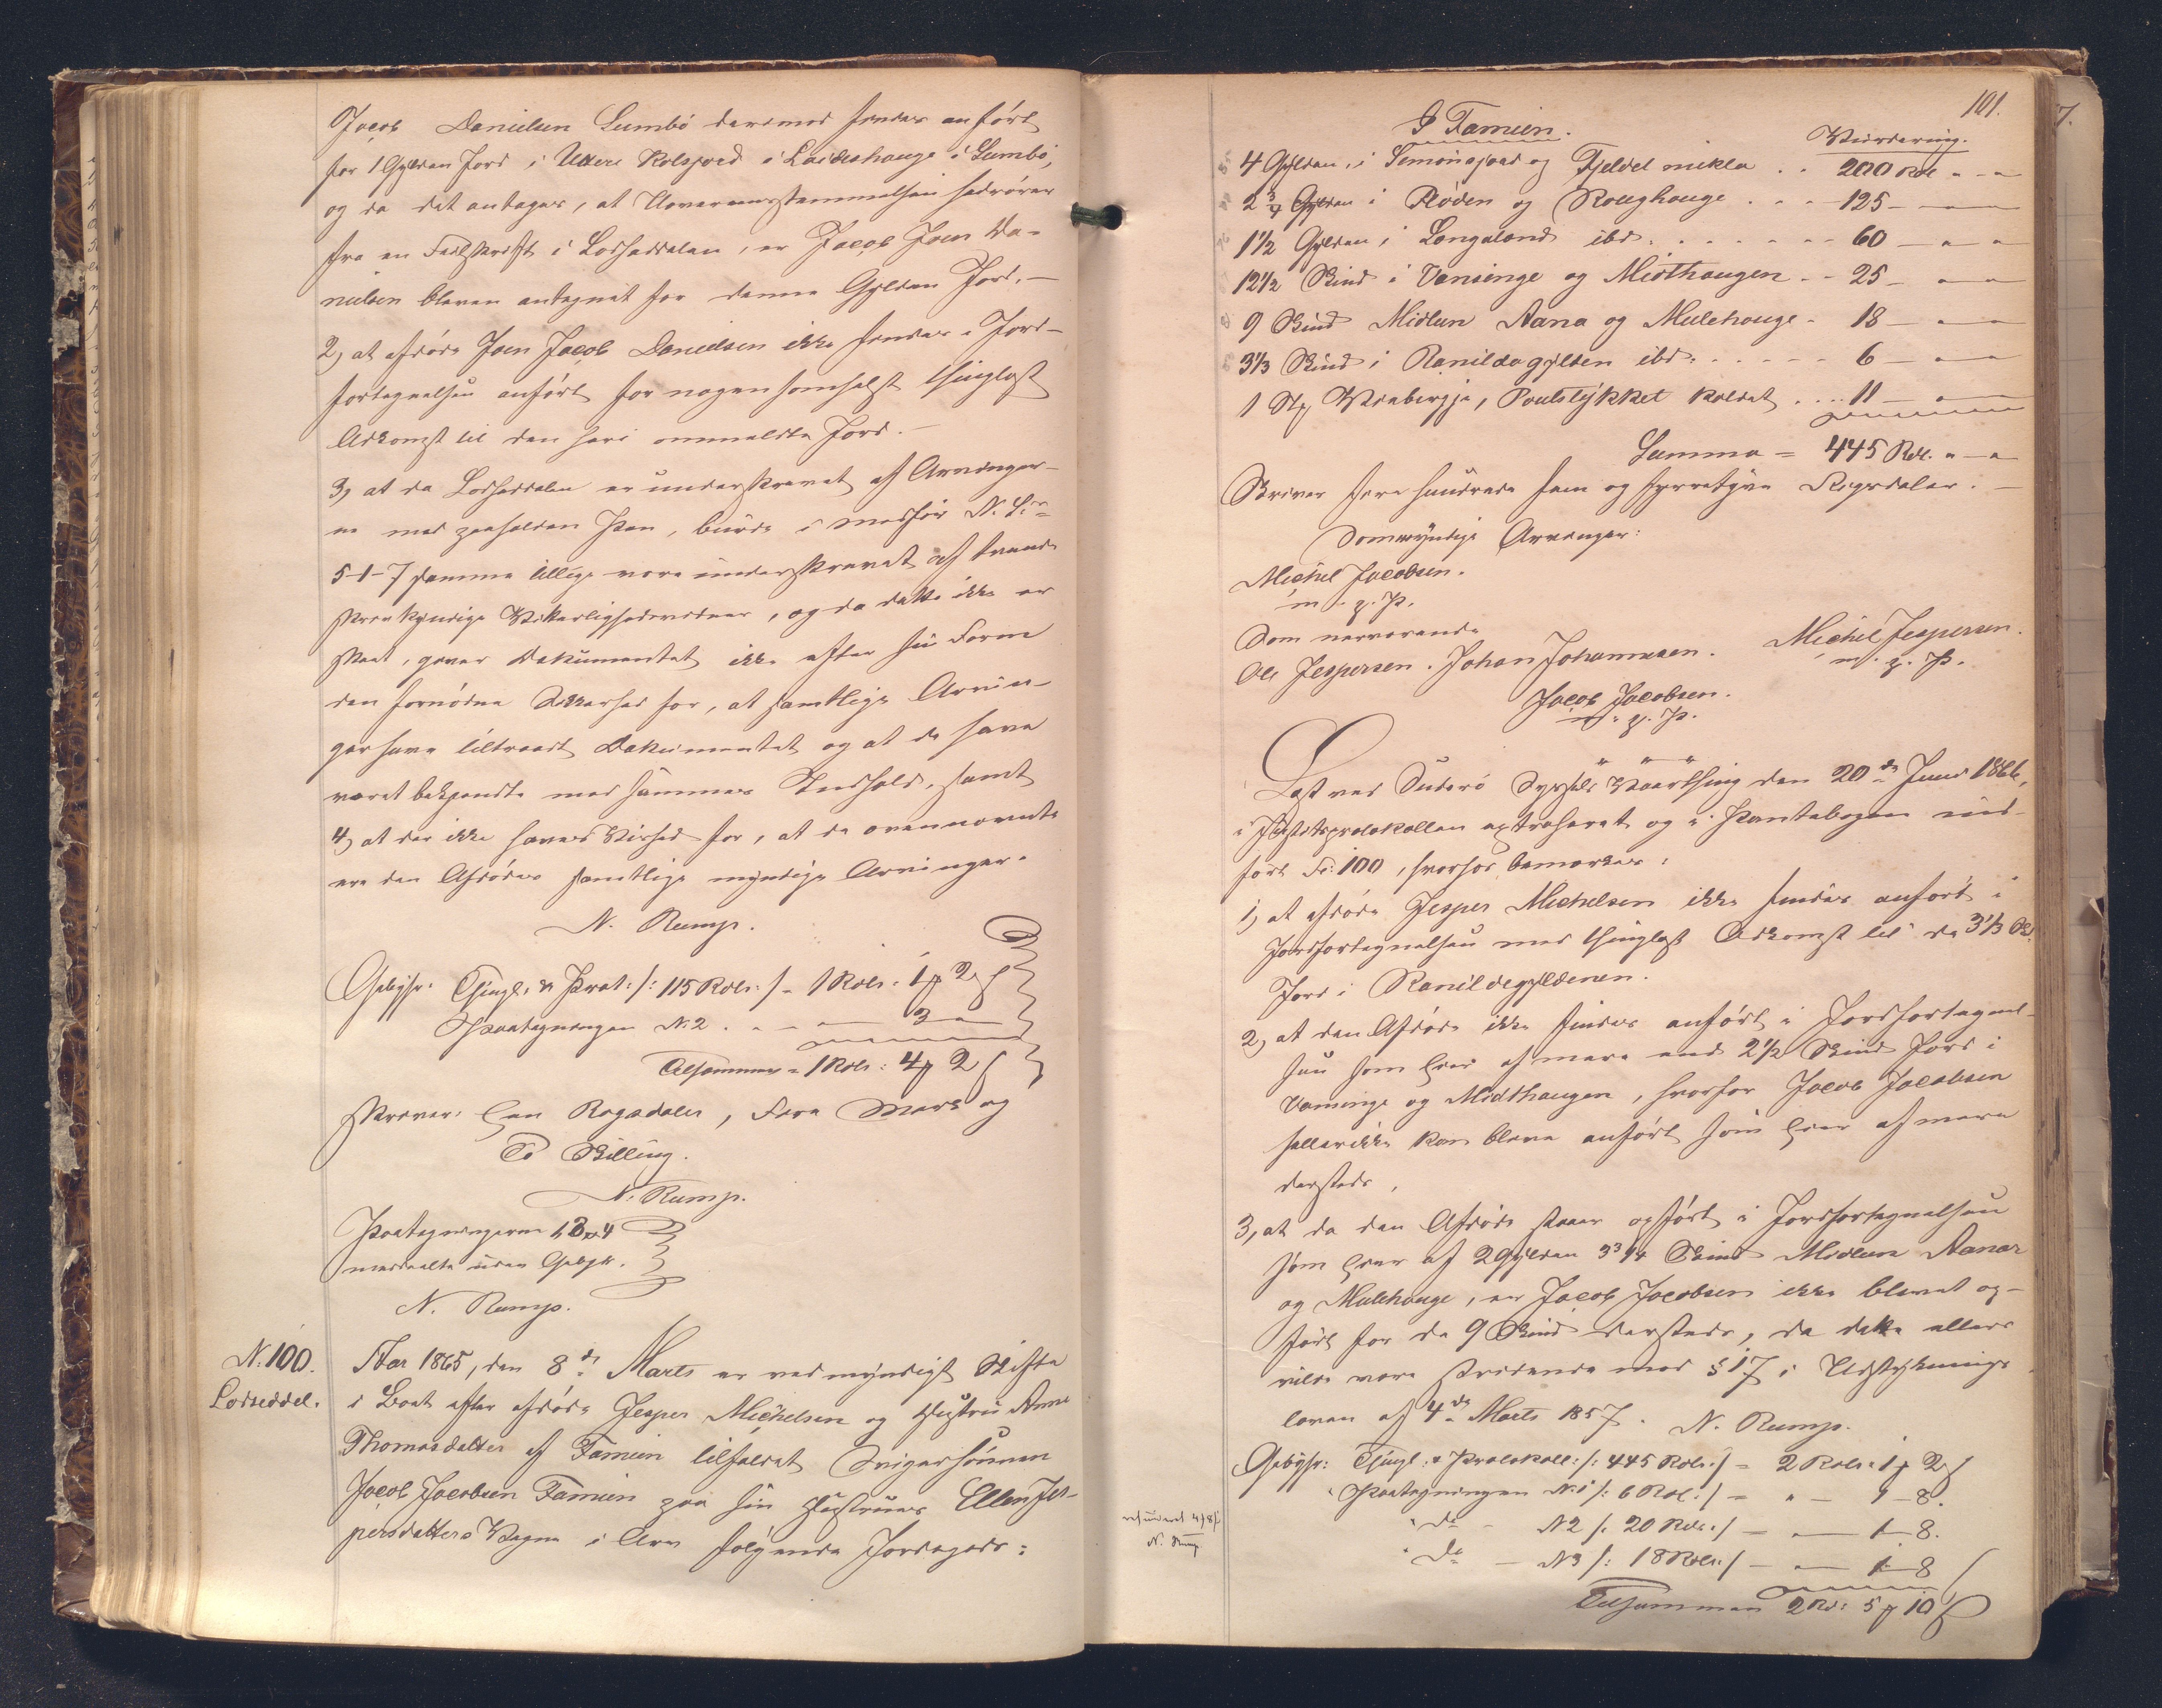 Jacob Danielsen Sumbø derimod findes anført
for 1 Gylden Jord i Uttere Rolsjord i Laideshauge i Sumbø,
og da det antages, at Uoverensstemmelsen hidrører
fra en Feilskrift i Lodseddelen, er Jacob Joen Da-
nielsen bleven antegnet for denne Gylden Jord. –
2, at afdøde Joen Jacob Danielsen ikke findes i Jord-
fortegnelsen anført for nogensomhelst thinglæst
Adkomst til den heri ommeldte Jord. –
3, at da Lodseddelen er underskrevet af Arvinger-
ne med paaholden Pen, burde i Medfør N. L:
5-1-7 samme tillige være underskrevet af tvende
skrivkyndige Vitterlighedsvidner, og da dette ikke er
skeet, giver Dokumentet ikke efter sin Form
den fornødne Sikkerhed for, at samtlige Arvin-
ger have tiltraadt Dokumentet og at de have
været bekjendte med sammes Indhold, samt
4, at der ikke haves Vished for, at de ovennævnte
ere den Afdødes samtlige myndige Arvinger.
N. Rump.
Gebyhr: Thingl. & Prot: /: 115 Rdlr: / = 1 Rdlr: 1 ƒ 2 ſ
Paategningen N. 2 . . - — 3 —
Tilsammen = 1 Rdlr: 4 ƒ 2 ſ
skriver: Een Rigsdaler, Fire Mark og
To Skilling.
N. Rump.
Paategningerne 1, 3 & 4
meddeelte uden Gebyhr.
N. Rump.
N. 100.
Lodseddel.
Aar 1865, den 8de Marts er ved myndigt Skifte
i Boet efter afdøde Jesper Michelsen og Hustru Anne
Thomasdatter af Famien tilfaldet Svigersønnen
Jacob Jacobsen Famien paa sin Hustrues Ellen Jes-
persdatters Vegne i Arv følgende Jordegods:
101.
I Famien.
Vurdering.
4 Gylden, i Simonsjord og Fjeldet mikla . . 200 Rdl. " — "
2 3/4 Gylden i Røden og Roughauge . . . - 125 — —
1 1/2 Gylden i Langalond ibd. . . . . . - - 60 — " — "
12 1/2 Skind i Vaninge og Midthaugen - - 25 — " — "
9 Skind Midlun Aana og Mulehauge - 18 — " —
3 1/3 Skind i Ranildagylden ibd. . . - - - 6 — " —
1 Stk, Poulstykket kaldet . . . . 11 — " —
Summa = 445 Rdl. " — "
Skriver fire hundrede fem og fyrretyve Rigsdaler. —
Som myndige Arvinger:
Michel Jacobsen.
m. p. P.
Som nærværende
Ole Jespersen. Johan Johannesen. Michel Jespersen.
m. p. P.
Jacob Jacobsen.
m. p. P.
" — " — "
Læst ved Suderø Syssels Vaarthing den 20de Juni 1866,
i Justitsprotokollen extraheret og i Pantebogen ind-
ført Fo: 100, hvorhos bemærkes:
1, at afdøde Jesper Michelsen ikke findes anført i
Jordfortegnelsen med thinglæst Adkomst til de 3 1/3 Sk.
Jord i Ranildegyldenen.
2, at den Afdøde ikke findes anført i Jordfortegnel-
sen som Eier af mere end 2 1/2 Skind Jord i
Vaninge og Midthaugen, hvorfor Jacob Jacobsen
heller ikke kan blive anført som Eier af mere
dersteds.
3, at da den Afdøde staaer opført i Jordfortegnelsen
som Eier af 2 Gylden 3 3/4 Skind Midlun Aanar
og Mulehauge, er Jacob Jacobsen ikke blevet op-
ført for de 9 Skind dersteds, da dette ellers
vilde være stridende mod § 17 i Udstyknings-
loven af 4de Marts 1857. N. Rump.
Gebyhr: Thingl: & Protokoll: /: 445 Rdlr: / = 2 Rdlr: 1 ƒ 2 ſ
Paategningen N. 1 /: 6 Rdl: / = " — 1 — 8.
do — N 2 /: 20 Rdlr: / — — 1 — 8.
do — N 3 /: 18 Rdlr: / — — 1 — 8
Tilsammen 2 Rd: 5 ƒ 10 ſ
refunderet 4 ƒ 8 ſ
N. Rump